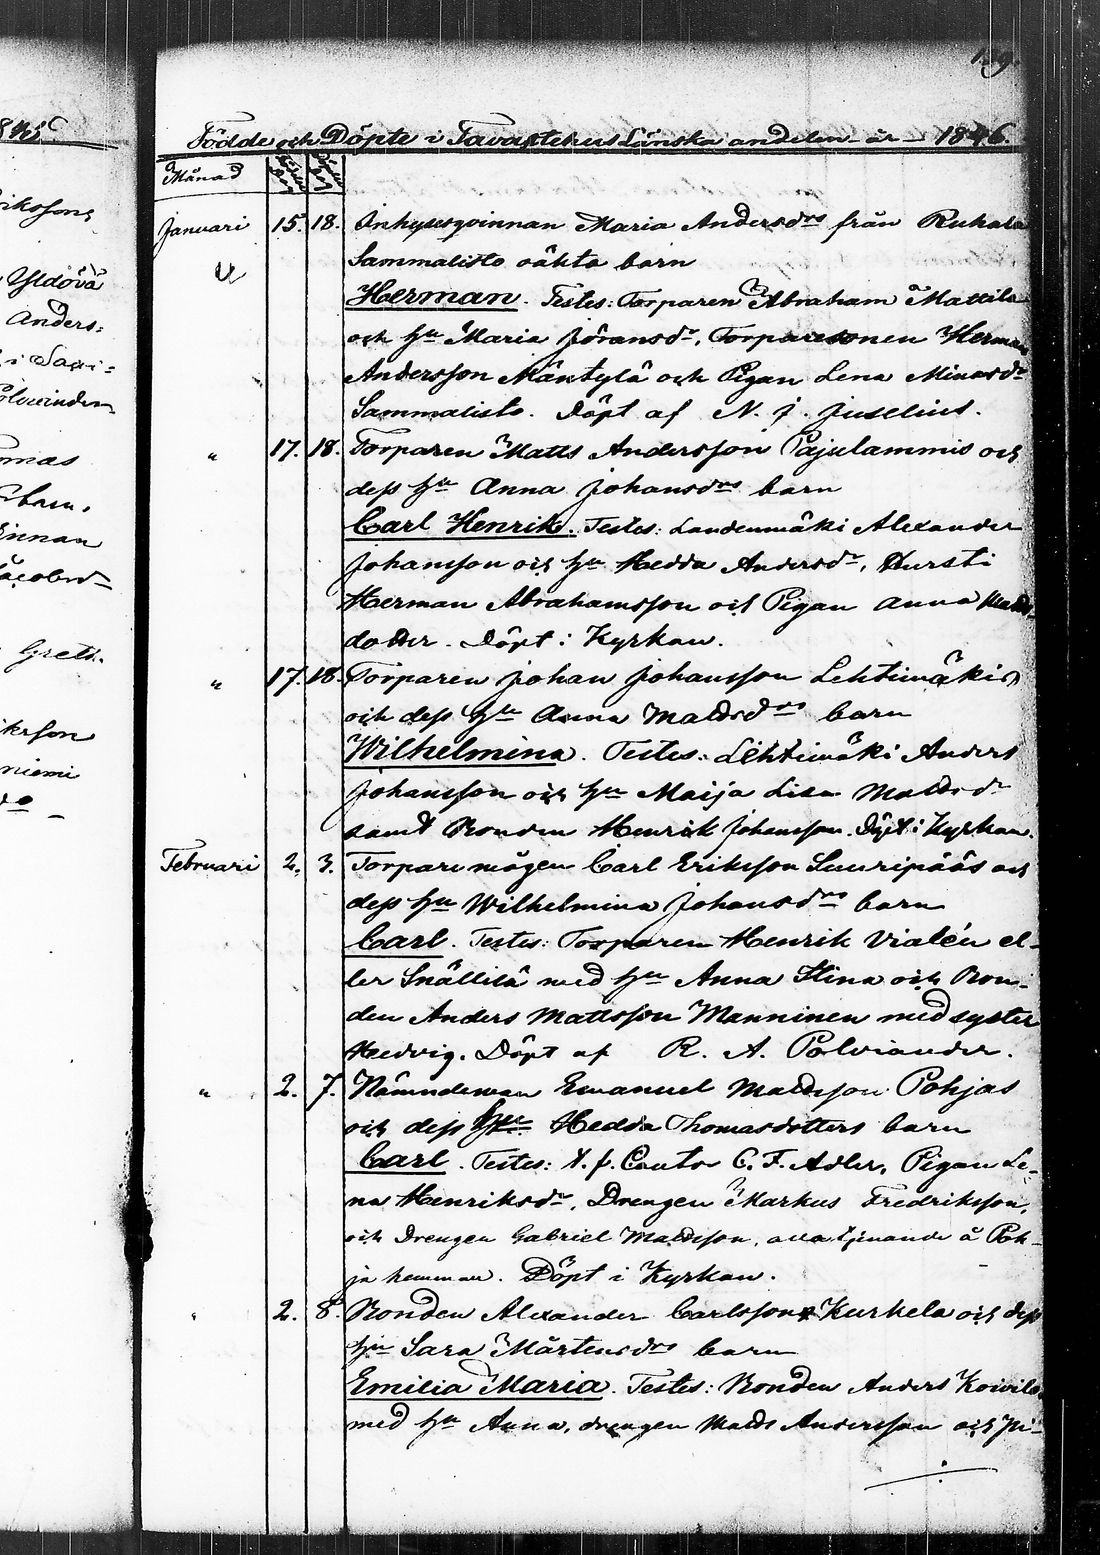 1845
riksson
Yldövä
Anders:
i Saxi:
omas
innan
Jacobsd
Greth.
kesson
niemi
159.
Födde och Döpte i Tavastehus Länska andelen år 1846.
Månad
Januari 15. 18. Inhysesqvinnan Maria Andersdrs från Ruhala
Sammalisto oäkta barn
Herman. Testes: Torparen Abraham Mattila
och hu Maria Jöransdr, Torparesonen Herman
Andersson Mäntylä och Pigan Lena Minasdr
Sammalisto. Döpt af N. J. Juselius.
" 17. 18. Torparen Matts Andersson Pajulammis och
dess hu Anna Johansdrs barn
Carl Henrik. Testes: Landenmäki Alexander
Johansson och hu Hedda Andersdr, Hursti
Herman Abrahamsson och Pigan Anna Matts
dotter. Döpt i Kyrkan.
" 17. 18. Torparen Johan Johansson Lehtimäkis
och dess hu Anna Mattsdrs barn
Wilhelmina. Testes: Lehtimäki Anders
Johansson och hu Maija Lisa Mattsdr
samt Bonden Henrik Johansson. Döpt i Kyrkan.
Februari 2. 3. Torpare mågen Carl Eriksson Suuripääs och
dess hu Wilhelmina Johansdrs barn
Carl. Testes: Torparen Henrik Vialén el-
ler Snällilä med hu Anna Stina och Bon-
den Anders Mattsson Manninen med syster
Hedvig. Döpt af R. A. Polviander.
" 2. 7. Nämndeman Emanuel Mattsson Pohjas
och dess hu Hedda Thomasdotters barn
Carl. Testes: V. p. Cantor C. F. Adler, Pigan Le-
na Henriksdr, Drengen Markus Fredriksson,
och Drengen Gabriel Mattsson, alla tjenande å Poh-
ja hemman. Döpt i Kyrkan.
" 2. 8. Bonden Alexander Carlssons Kurkela och dess
hu Sara Mårtensdrs barn
Emilia Maria. Testes: Bonden Anders Koivila
med hu Anna, drengen Matts Andersson och Pi-